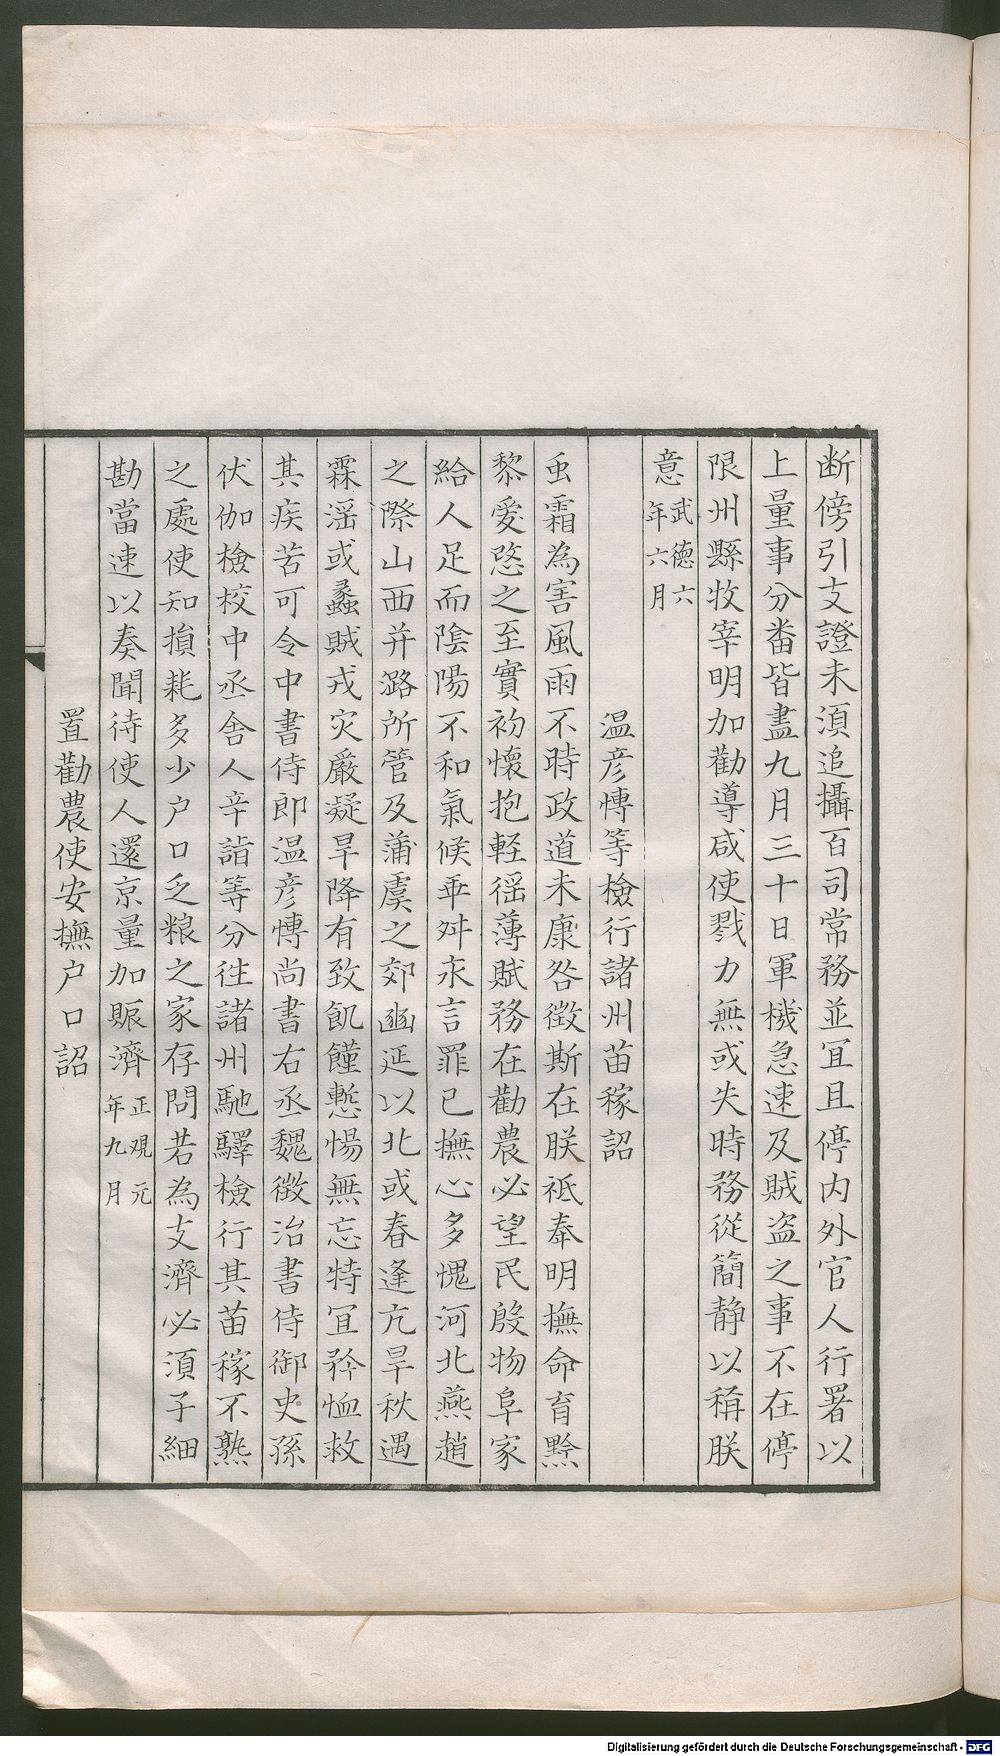 断傍引支證未須追攝百司常務並冝且停内外官人行署以
上量事分畨皆盡九月三十日軍機急速及賊盗之事不在停
限州縣牧宰明加勸導咸使戮力無或失時務從簡静以稱朕
意武德六年六月
温彦愽等檢行諸州苗稼詔
䖝霜為害風雨不時政道未康咎徴斯在朕祗奉明撫命育黔
黎愛慜之至實初懷抱軽徭薄賦務在勸農必望民殷物阜家
給人足而陰陽不和氣候乖舛永言罪已撫心多愧河北燕趙
之際山西并潞所管及蒲虞之郊豳延以北或春逢亢旱秋遇
霖滛或蟊賊戎灾嚴凝旱降有致飢饉慙惕無忘特冝矜恤救
其疾苦可令中書侍郎温彦愽尚書右丞魏徴治書侍御史孫
伏伽檢校中丞舎人辛諝等分往諸州馳驛檢行其苗稼不熟
之處使知損耗多少户口乏粮之家存問若為支濟必須子細
勘當速以奏聞待使人還京量加賑濟正观元年九月
置勸農使安撫户口詔
Digitalisierung gefördert durch die Deutsche Forschungsgemeinschaft - DFG